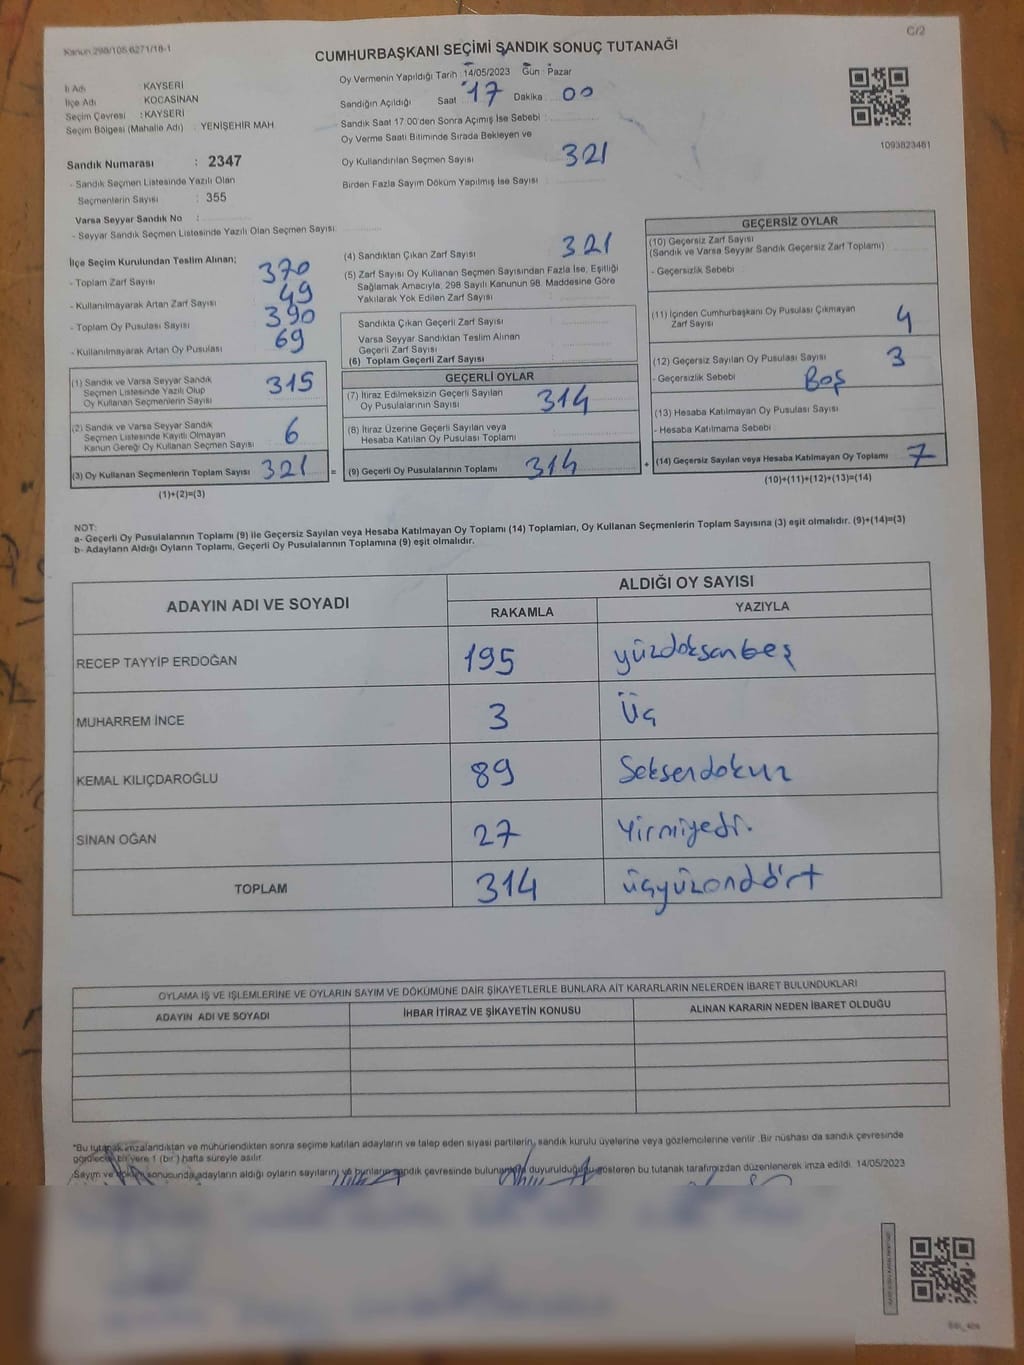 Kanun 298/105 6271/18-1
C/2
CUMHURBAŞKANI SEÇİMİ SANDIK SONUÇ TUTANAĞI
İl Adı KAYSERİ
İlçe Adı KOCASİNAN
Seçim Çevresi : KAYSERİ
Seçim Bölgesi (Mahalle Adı) : YENİŞEHİR MAH
Sandık Numarası : 2347
- Sandık Seçmen Listesinde Yazılı Olan
Seçmenlerin Sayısı : 355
Varsa Seyyar Sandık No :
- Seyyar Sandık Seçmen Listesinde Yazılı Olan Seçmen Sayısı:
Oy Vermenin Yapıldığı Tarih : 14/05/2023 Gün : Pazar
Sandığın Açıldığı Saat : 17 Dakika 00
Sandık Saat 17.00'den Sonra Açımış İse Sebebi :
Oy Verme Saati Bitiminde Sırada Bekleyen ve
Oy Kullandırılan Seçmen Sayısı 321
Birden Fazla Sayım Döküm Yapılmış İse Sayısı :
1093823461
İlçe Seçim Kurulundan Teslim Alınan;
- Toplam Zarf Sayısı : 370
- Kullanılmayarak Artan Zarf Sayısı : 49
- Toplam Oy Pusulası Sayısı : 390
- Kullanılmayarak Artan Oy Pusulası : 69
(1) Sandık ve Varsa Seyyar Sandık
Seçmen Listesinde Yazılı Olup
Oy Kullanan Seçmenlerin Sayısı 315
(2) Sandık ve Varsa Seyyar Sandık
Seçmen Listesinde Kayıtlı Olmayan
Kanun Gereği Oy Kullanan Seçmen Sayısı 6
(3) Oy Kullanan Seçmenlerin Toplam Sayısı 321 =
(1)+(2)=(3)
(4) Sandıktan Çıkan Zarf Sayısı 321
(5) Zarf Sayısı Oy Kullanan Seçmen Sayısından Fazla İse, Eşitliği
Sağlamak Amacıyla, 298 Sayılı Kanunun 98. Maddesine Göre
Yakılarak Yok Edilen Zarf Sayısı
Sandıkta Çıkan Geçerli Zarf Sayısı
Varsa Seyyar Sandıktan Teslim Alınan
Geçerli Zarf Sayısı
(6) Toplam Geçerli Zarf Sayısı
GEÇERLİ OYLAR
(7) İtiraz Edilmeksizin Geçerli Sayılan
Oy Pusulalarının Sayısı 314
(8) İtiraz Üzerine Geçerli Sayılan veya
Hesaba Katılan Oy Pusulası Toplamı
(9) Geçerli Oy Pusulalarının Toplamı 314 +
GEÇERSİZ OYLAR
(10) Geçersiz Zarf Sayısı
(Sandık ve Varsa Seyyar Sandık Geçersiz Zarf Toplamı)
- Geçersizlik Sebebi
(11) İçinden Cumhurbaşkanı Oy Pusulası Çıkmayan
Zarf Sayısı 4
(12) Geçersiz Sayılan Oy Pusulası Sayısı 3
- Geçersizlik Sebebi Boş
(13) Hesaba Katılmayan Oy Pusulası Sayısı
- Hesaba Katılmama Sebebi
(14) Geçersiz Sayılan veya Hesaba Katılmayan Oy Toplamı 7
(10)+(11)+(12)+(13)=(14)
NOT:
a- Geçerli Oy Pusulalarının Toplamı (9) ile Geçersiz Sayılan veya Hesaba Katılmayan Oy Toplamı (14) Toplamları, Oy Kullanan Seçmenlerin Toplam Sayısına (3) eşit olmalıdır. (9)+(14)=(3)
b- Adayların Aldığı Oyların Toplamı, Geçerli Oy Pusulalarının Toplamına (9) eşit olmalıdır.
ADAYIN ADI VE SOYADI
ALDIĞI OY SAYISI
RAKAMLA YAZIYLA
RECEP TAYYİP ERDOĞAN 195 yüzdoksanbeş
MUHARREM İNCE 3 Üç
KEMAL KILIÇDAROĞLU 89 Seksendokuz
SİNAN OĞAN 27 Yirmiyedi.
TOPLAM 314 üçyüzondört
OYLAMA İŞ VE İŞLEMLERİNE VE OYLARIN SAYIM VE DÖKÜMÜNE DAİR ŞİKAYETLERLE BUNLARA AİT KARARLARIN NELERDEN İBARET BULUNDUKLARI
ADAYIN ADI VE SOYADI İHBAR İTİRAZ VE ŞİKAYETİN KONUSU ALINAN KARARIN NEDEN İBARET OLDUĞU
*Bu tutanak imzalandıktan ve mühürlendikten sonra seçime katılan adayların ve talep eden siyasi partilerin, sandık kurulu üyelerine veya gözlemcilerine verilir .Bir nüshası da sandık çevresinde
görülecek bir yere 1 (bir ) hafta süreyle asılır.
Sayım ve döküm sonusunda,adayların aldığı oyların sayılarını ve bunların sandık çevresinde bulunanlara duyurulduğunu gösteren bu tutanak tarafımızdan düzenlenerek imza edildi. 14/05/2023